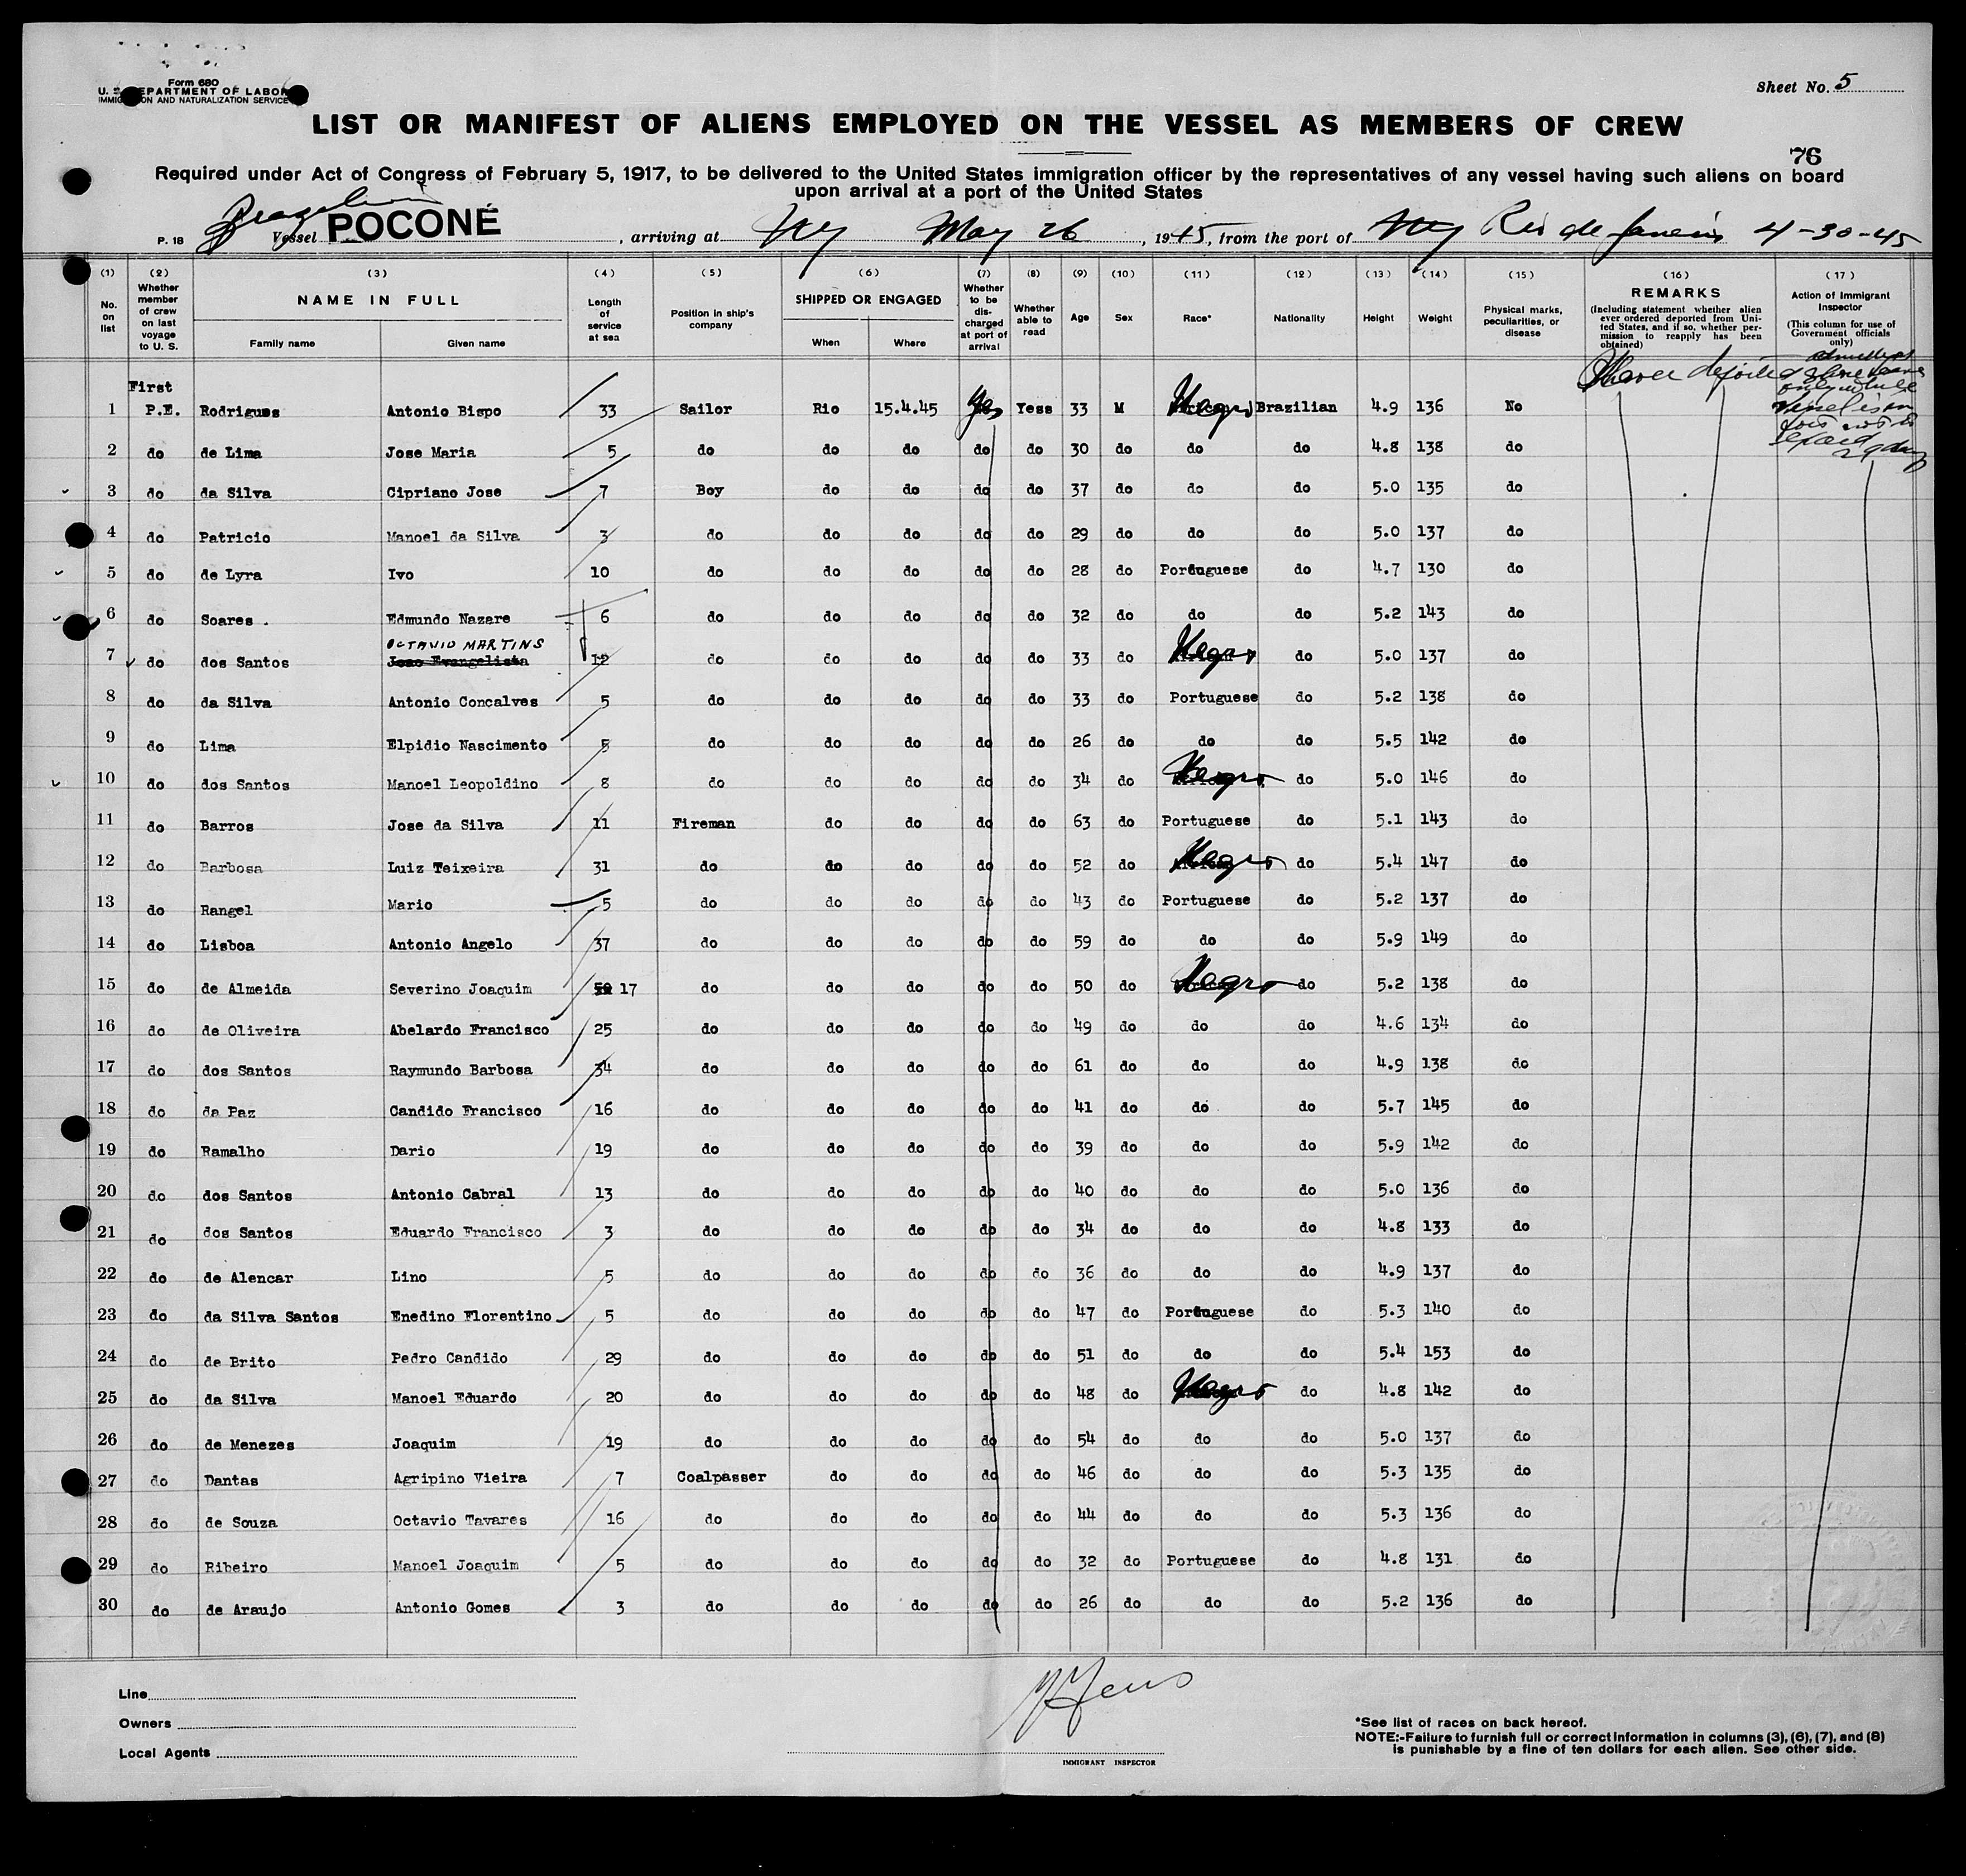 Form 680
U. S. DEPARTMENT OF LABOR
IMMIGRATION AND NATURALIZATION SERVICE
Sheet No. 5
LIST OR MANIFEST OF ALIENS EMPLOYED ON THE VESSEL AS MEMBERS OF CREW
76
Required under Act of Congress of February 5, 1917, to be delivered to the United States immigration officer by the representatives of any vessel having such aliens on board
upon arrival at a port of the United States
P. 18 Vessel POCONÉ, arriving at NY May 26, 1945, from the port of NY Rio de Janeiro 4-30-45
(1) (2) (3) (4) (5) (6) (7) (8) (9) (10) (11) (12) (13) (14) (15) (16) (17)
No. on list
Whether member of crew on last voyage to U. S.
NAME IN FULL
Family name Given name
Length of service at sea
Position in ship's company
SHIPPED OR ENGAGED
When Where
Whether to be discharged at port of arrival
Whether able to read
Age Sex Race* Nationality Height Weight
Physical marks, peculiarities, or disease
REMARKS
(Including statement whether alien ever ordered deported from United States, and if so, whether permission to reapply has been obtained)
Action of Immigrant Inspector
(This column for use of Government officials only)
First
1 P.E. Rodrigues Antonio Bispo 33 Sailor Rio 15.4.45 Yes Yess 33 M Negro Brazilian 4.9 136 No
2 do de Lima Jose Maria 5 do do do do do 30 do do do 4.8 138 do
3 do da Silva Cipriano Jose 7 Boy do do do do 37 do do do 5.0 135 do
4 do Patricio Manoel da Silva 3 do do do do do 29 do do do 5.0 137 do
5 do de Lyra Ivo 10 do do do do do 28 do Portuguese do 4.7 130 do
6 do Soares . Edmundo Nazare 6 do do do do do 32 do do do 5.2 143 do
OCTAVIO MARTINS
7 do dos Santos Joao Evangelista 12 do do do do do 33 do Negro do 5.0 137 do
8 do da Silva Antonio Concalves 5 do do do do do 33 do Portuguese do 5.2 138 do
9 do Lima Elpidio Nascimento 5 do do do do do 26 do do do 5.5 142 do
10 do dos Santos Manoel Leopoldino 8 do do do do do 34 do Negro do 5.0 146 do
11 do Barros Jose da Silva 11 Fireman do do do do 63 do Portuguese do 5.1 143 do
12 do Barbosa Luiz Teixeira 31 do do do do do 52 do Negro do 5.4 147 do
13 do Rangel Mario 5 do do do do do 43 do Portuguese do 5.2 137 do
14 do Lisboa Antonio Angelo 37 do do do do do 59 do do do 5.9 149 do
15 do de Almeida Severino Joaquim 17 do do do do do 50 do Negro do 5.2 138 do
16 do de Oliveira Abelardo Francisco 25 do do do do do 49 do do do 4.6 134 do
17 do dos Santos Raymundo Barbosa 34 do do do do do 61 do do do 4.9 138 do
18 do da Paz Candido Francisco 16 do do do do do 41 do do do 5.7 145 do
19 do Ramalho Dario 19 do do do do do 39 do do do 5.9 142 do
20 do dos Santos Antonio Cabral 13 do do do do do 40 do do do 5.0 136 do
21 do dos Santos Eduardo Francisco 3 do do do do do 34 do do do 4.8 133 do
22 do de Alencar Lino 5 do do do do do 36 do do do 4.9 137 do
23 do da Silva Santos Enedino Florentino 5 do do do do do 47 do Portuguese do 5.3 140 do
24 do de Brito Pedro Candido 29 do do do do do 51 do do do 5.4 153 do
25 do da Silva Manoel Eduardo 20 do do do do do 48 do Negro do 4.8 142 do
26 do de Menezes Joaquim 19 do do do do do 54 do do do 5.0 137 do
27 do Dantas Agripino Vieira 7 Coalpasser do do do do 46 do do do 5.3 135 do
28 do de Souza Octavio Tavares 16 do do do do do 44 do do do 5.3 136 do
29 do Ribeiro Manoel Joaquim 5 do do do do do 32 do Portuguese do 4.8 131 do
30 do de Araujo Antonio Gomes 3 do do do do do 26 do do do 5.2 136 do
Line
Owners
Local Agents
IMMIGRANT INSPECTOR
*See list of races on back hereof.
NOTE:-Failure to furnish full or correct information in columns (3), (6), (7), and (8)
is punishable by a fine of ten dollars for each alien. See other side.